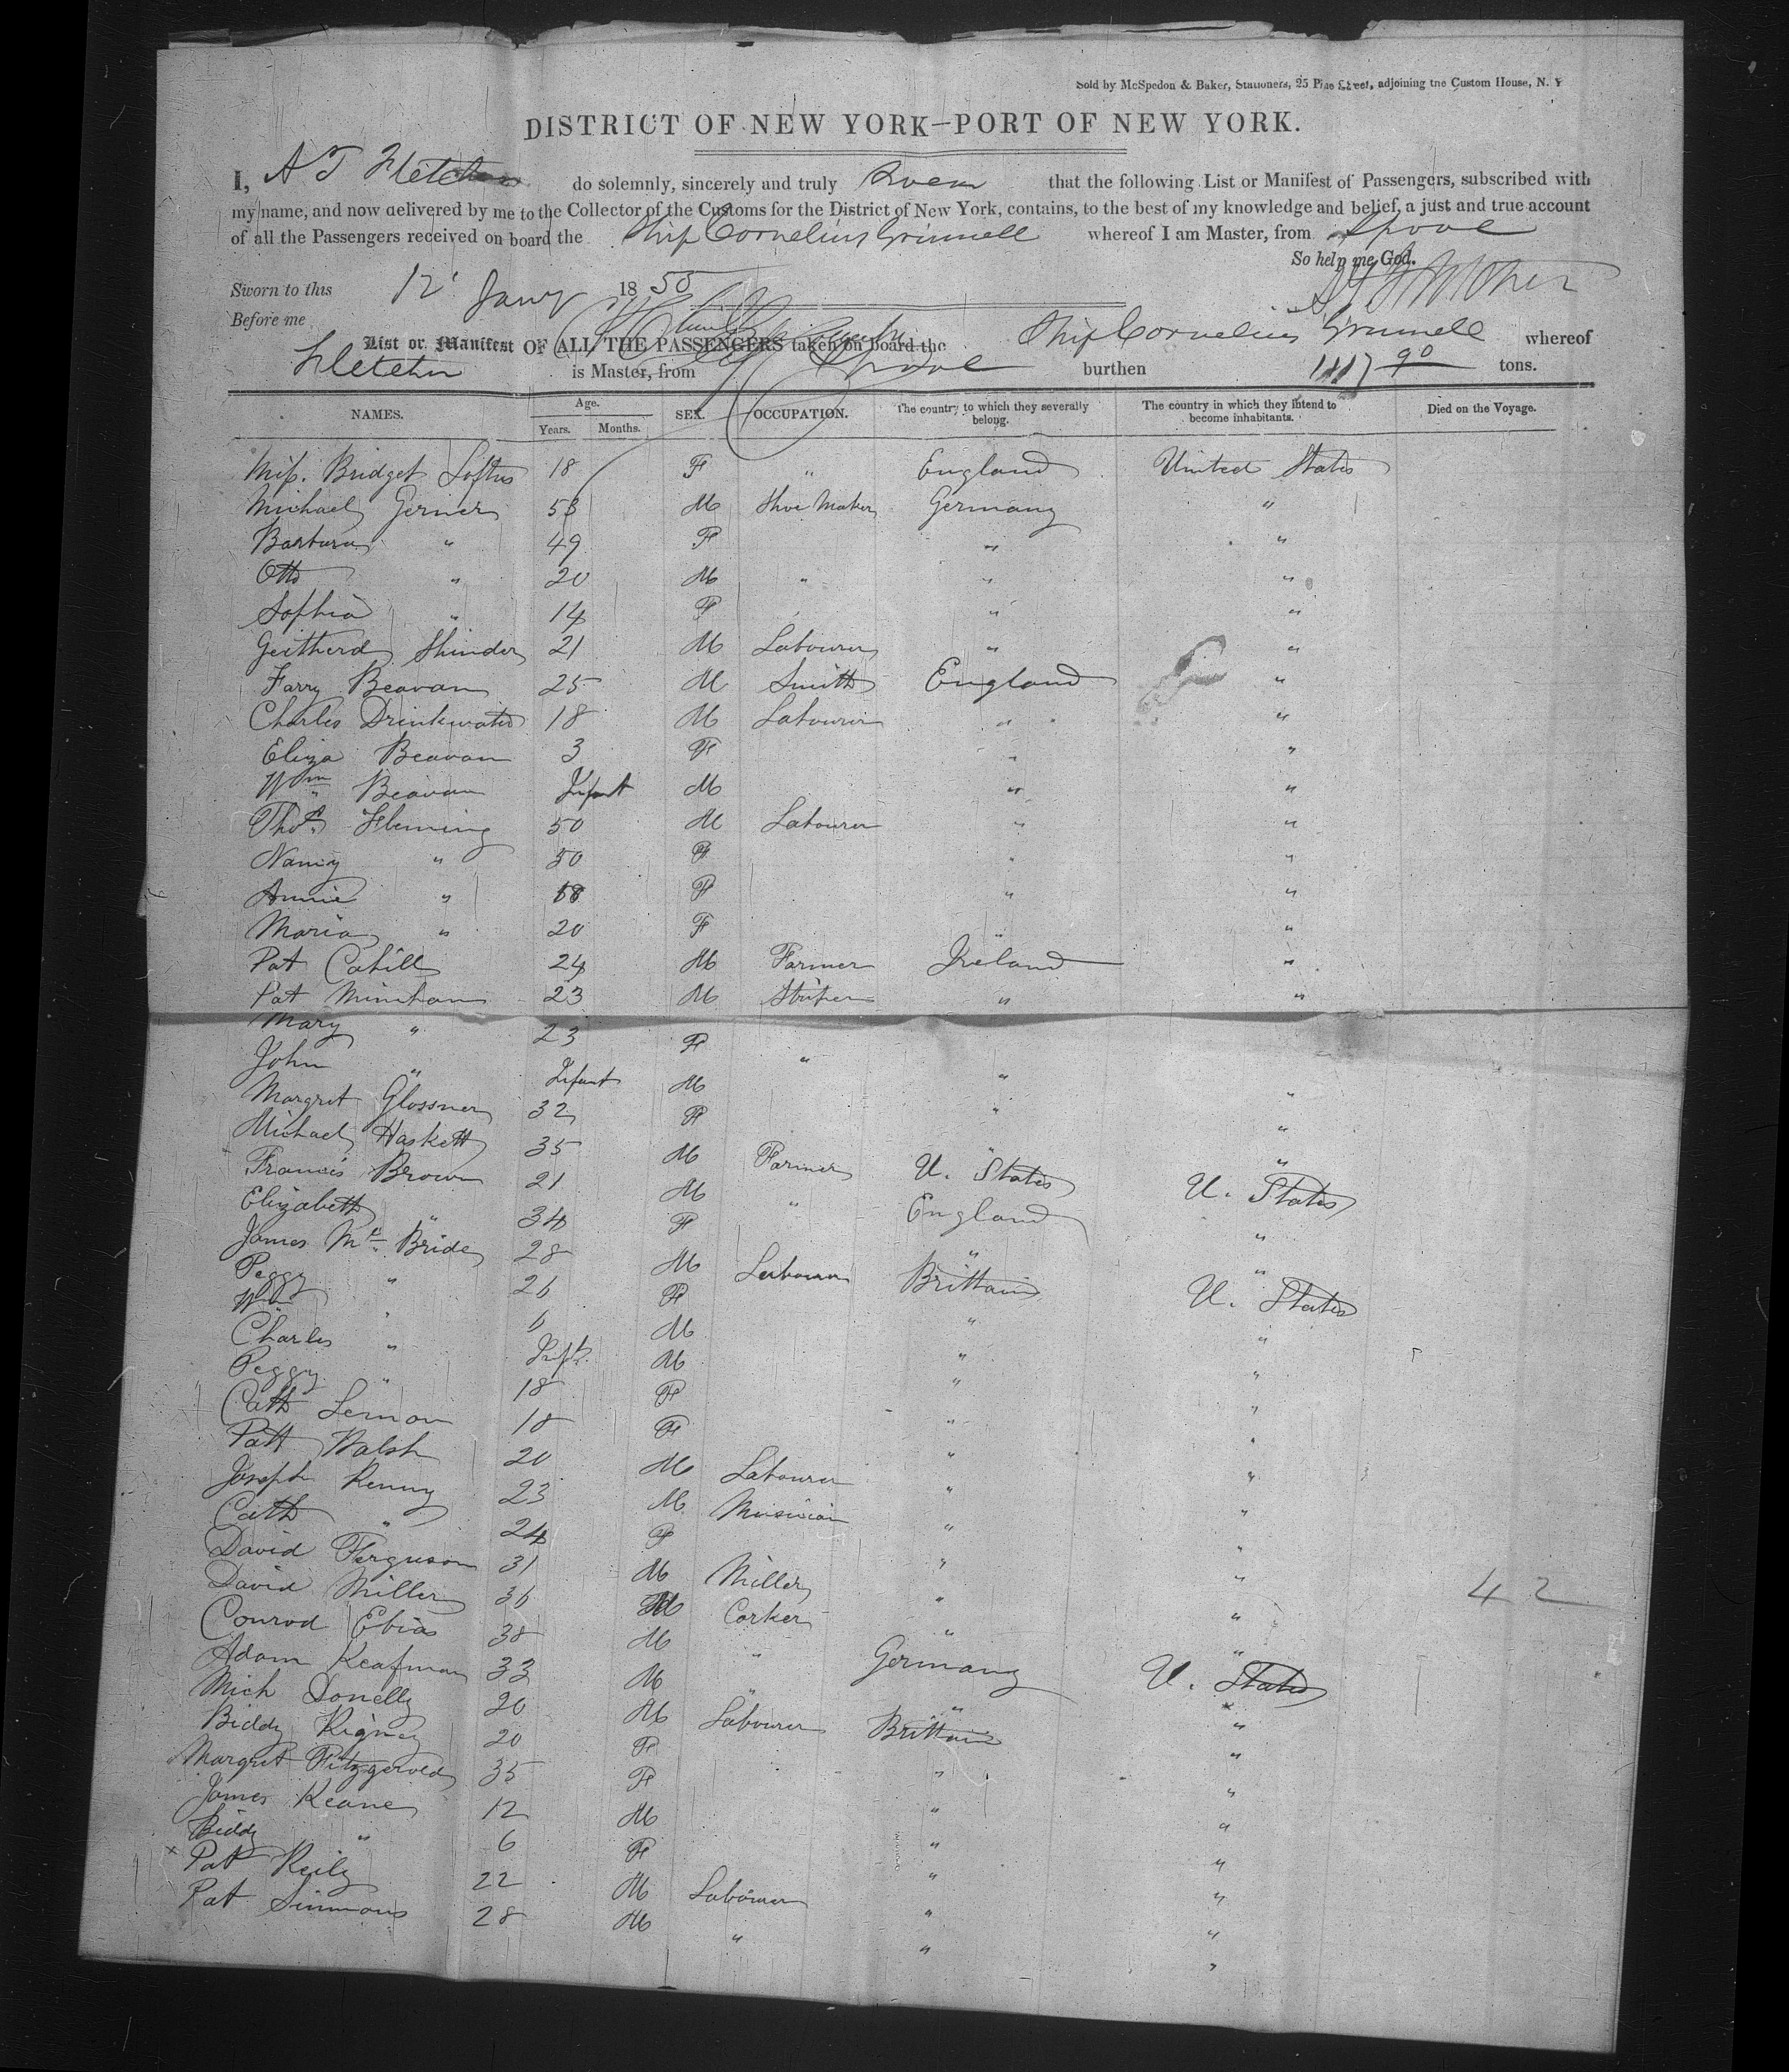 Sold by McSpedon & Baker, Stationers, 25 Pine Street, adjoining the Custom House, N. Y
DISTRICT OF NEW YORK—PORT OF NEW YORK.
I, A T Fletcher do solemnly, sincerely and truly Swear that the following List or Manifest of Passengers, subscribed with
my name, and now delivered by me to the Collector of the Customs for the District of New York, contains, to the best of my knowledge and belief, a just and true account
of all the Passengers received on board the Ship Cornelius Grinnell whereof I am Master, from Lpool
So help me God.
Sworn to this 12 Jany 1855
Before me
List or Manifest OF ALL THE PASSENGERS taken on board the Ship Cornelius Grinnell whereof
Fletcher is Master, from Lpool burthen 1117 90 tons.
NAMES. Age. Years. Months. SEX. OCCUPATION. The country to which they severally belong. The country in which they intend to become inhabitants. Died on the Voyage.
Miss. Bridget Loftus 18 F " England United States
Michael Gerner 53 M Shoe Maker Germany "
Barbara " 49 F " "
Otto " 20 M " " "
Sophia " 14 F " "
Shinder 21 M Labourer " "
Farry Beavan 25 M Smith England "
Charles Drinkwater 18 M Labourer " "
Eliza Beavan 3 F " "
Wm Beavan Infant M " "
Thos. Fleming 50 M Labourer " "
Nancy " 50 F " "
Annie " 18 F " "
Maria " 20 F " "
Pat Cahill 24 M Farmer Ireland "
Pat Minihan 23 M " "
Mary " 23 F " "
John " Infant M " "
Margret Glossner 32 F " "
Michael Haskett 35 M Farmer U. States U. States
Francis Brown 21 M " England "
Elizabeth " 34 F " "
James Mc Bride 28 M Labourer Brittain U. States
Peggy " 26 F " "
Wm " 6 M " "
Charles " Inft. M " "
Peggy " 18 F " "
Cath Lennon 18 F " "
Patt Walsh 20 M Labourer " "
Joseph Kenny 23 M Musician " "
Cath " 24 F " "
David Ferguson 31 M Miller " "
David Miller 36 M Corker " "
Conrod Ebias 38 M " Germany U. States
Adam Keafman 33 M " " "
Mich Donelly 20 M Labourer Brittain "
Biddy Rigney 20 F " "
Margret Fitzgerald 35 F " "
James Keane 12 M " "
Biddy " 6 F " "
x Pat Reily 22 M Labourer " "
Pat Simmons 28 M " " "
42